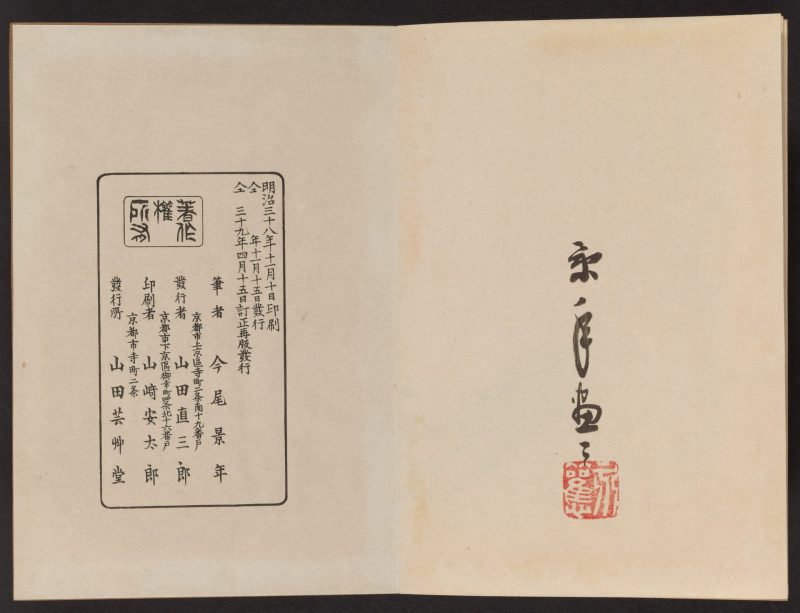 明治三十八年十一月十日印刷
仝　年十一月十五日發行
仝　三十九年四月十五日訂正再版發行
著作
權
所有
筆者　今尾景年
京都市上京區寺町二条南十九番戸
發行者　山田直三郎
京都市下京區御幸町四条北十六番戸
印刷者　山﨑安太郎
京都市寺町二条
發行所　山田芸艸堂
景年画